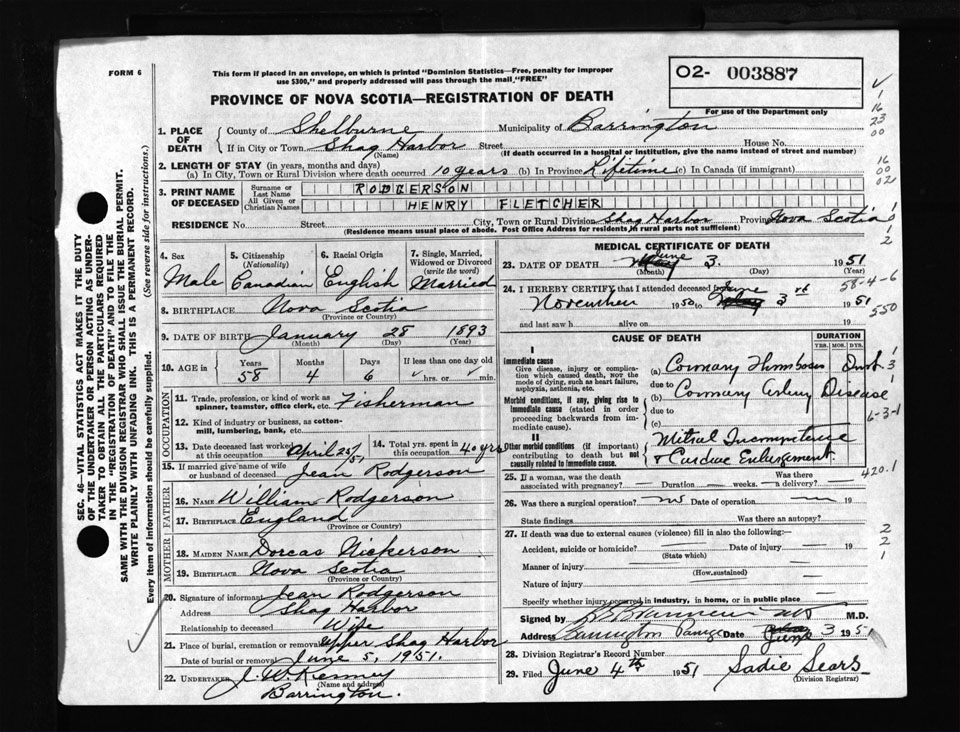 FORM 6
This form if placed in an envelope, on which is printed "Dominion Statistics—Free, penalty for improper
use $300," and properly addressed will pass through the mail "FREE"
O2- 003887
For use of the Department only
PROVINCE OF NOVA SCOTIA—REGISTRATION OF DEATH
1. PLACE OF DEATH
County of Shelburne Municipality of Barrington
If in City or Town Shag Harbor Street House No.
(Name) (If death occurred in a hospital or institution, give the name instead of street and number)
2. LENGTH OF STAY (in years, months and days)
(a) In City, Town or Rural Division where death occurred 10 years (b) In Province Lifetime (c) In Canada (if immigrant)
3. PRINT NAME OF DECEASED
Surname or Last Name RODGERSON
All Given or Christian Names HENRY FLETCHER
RESIDENCE No. Street City, Town or Rural Division Shag Harbor Province Nova Scotia
(Residence means usual place of abode. Post Office Address for residents in rural parts not sufficient)
4. Sex
Male
5. Citizenship
(Nationality)
Canadian
6. Racial Origin
English
7. Single, Married, Widowed or Divorced
(write the word)
Married
8. BIRTHPLACE Nova Scotia
(Province or Country)
9. DATE OF BIRTH January 28 1893
(Month) (Day) (Year)
10. AGE in Years Months Days If less than one day old
58 4 6 hrs. or min.
OCCUPATION
11. Trade, profession, or kind of work as
spinner, teamster, office clerk, etc. Fisherman
12. Kind of industry or business, as cotton-
mill, lumbering, bank, etc.
13. Date deceased last worked at this occupation April 25/51
14. Total yrs. spent in this occupation 40 yrs
15. If married give name of wife or husband of deceased Jean Rodgerson
FATHER
16. NAME William Rodgerson
17. BIRTHPLACE England
(Province or Country)
MOTHER
18. MAIDEN NAME Dorcas Nickerson
19. BIRTHPLACE Nova Scotia
(Province or Country)
20. Signature of informant Jean Rodgerson
Address Shag Harbor
Relationship to deceased Wife
21. Place of burial, cremation or removal upper Shag Harbor
Date of burial or removal June 5, 1951.
22. UNDERTAKER J. W. Kenney
(Name and address)
Barrington.
MEDICAL CERTIFICATE OF DEATH
23. DATE OF DEATH June 3. 1951
(Month) (Day) (Year)
24. I HEREBY CERTIFY that I attended deceased from
November 1950 to June 3rd 1951
and last saw h alive on 19
CAUSE OF DEATH
DURATION
YRS. MOS. DYS.
I
Immediate cause
Give disease, injury or complication which caused death, NOT the mode of dying, such as heart failure, asphyxia, asthenia, etc.
(a) Coronary Thrombosis
due to
Morbid conditions, if any, giving rise to immediate cause (stated in order proceeding backwards from immediate cause).
(b) Coronary Artery Disease
due to
(c)
II
Other morbid conditions (if important) contributing to death but not causally related to immediate cause.
Mitral Incompetence
& Cardiac Enlargement
25. If a woman, was the death associated with pregnancy? — Duration — weeks. Was there a delivery? —
26. Was there a surgical operation? no Date of operation — 19
State findings Was there an autopsy?
27. If death was due to external causes (violence) fill in also the following:
Accident, suicide or homicide? Date of injury 19
(State which)
Manner of injury
(How sustained)
Nature of injury
Specify whether injury occurred in industry, in home, or in public place
Signed by M.D.
Address Barrington Passage Date June 3 1951
28. Division Registrar's Record Number
29. Filed June 4th 1951 Sadie Sears
(Division Registrar)
SEC. 46—VITAL STATISTICS ACT MAKES IT THE DUTY
OF THE UNDERTAKER OR PERSON ACTING AS UNDER-
TAKER TO OBTAIN ALL THE PARTICULARS REQUIRED
IN THE "REGISTRATION OF DEATH" AND TO FILE THE
SAME WITH THE DIVISION REGISTRAR WHO SHALL ISSUE THE BURIAL PERMIT.
WRITE PLAINLY WITH UNFADING INK. THIS IS A PERMANENT RECORD.
Every item of information should be carefully supplied. (See reverse side for instructions.)
1
16
23
00
16
00
02
1
1
2
58-4-6
550
1
3
1
6-3-1
420.1
2
2
1